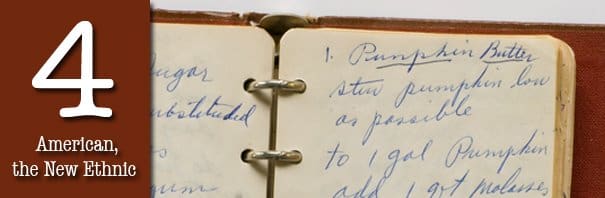 4
American,
the New Ethnic
sugar
ubstituted
1. Pumpkin Butter
stew pumpkin low
as possible
to 1 gal Pumpkin
add 1 qt molasses